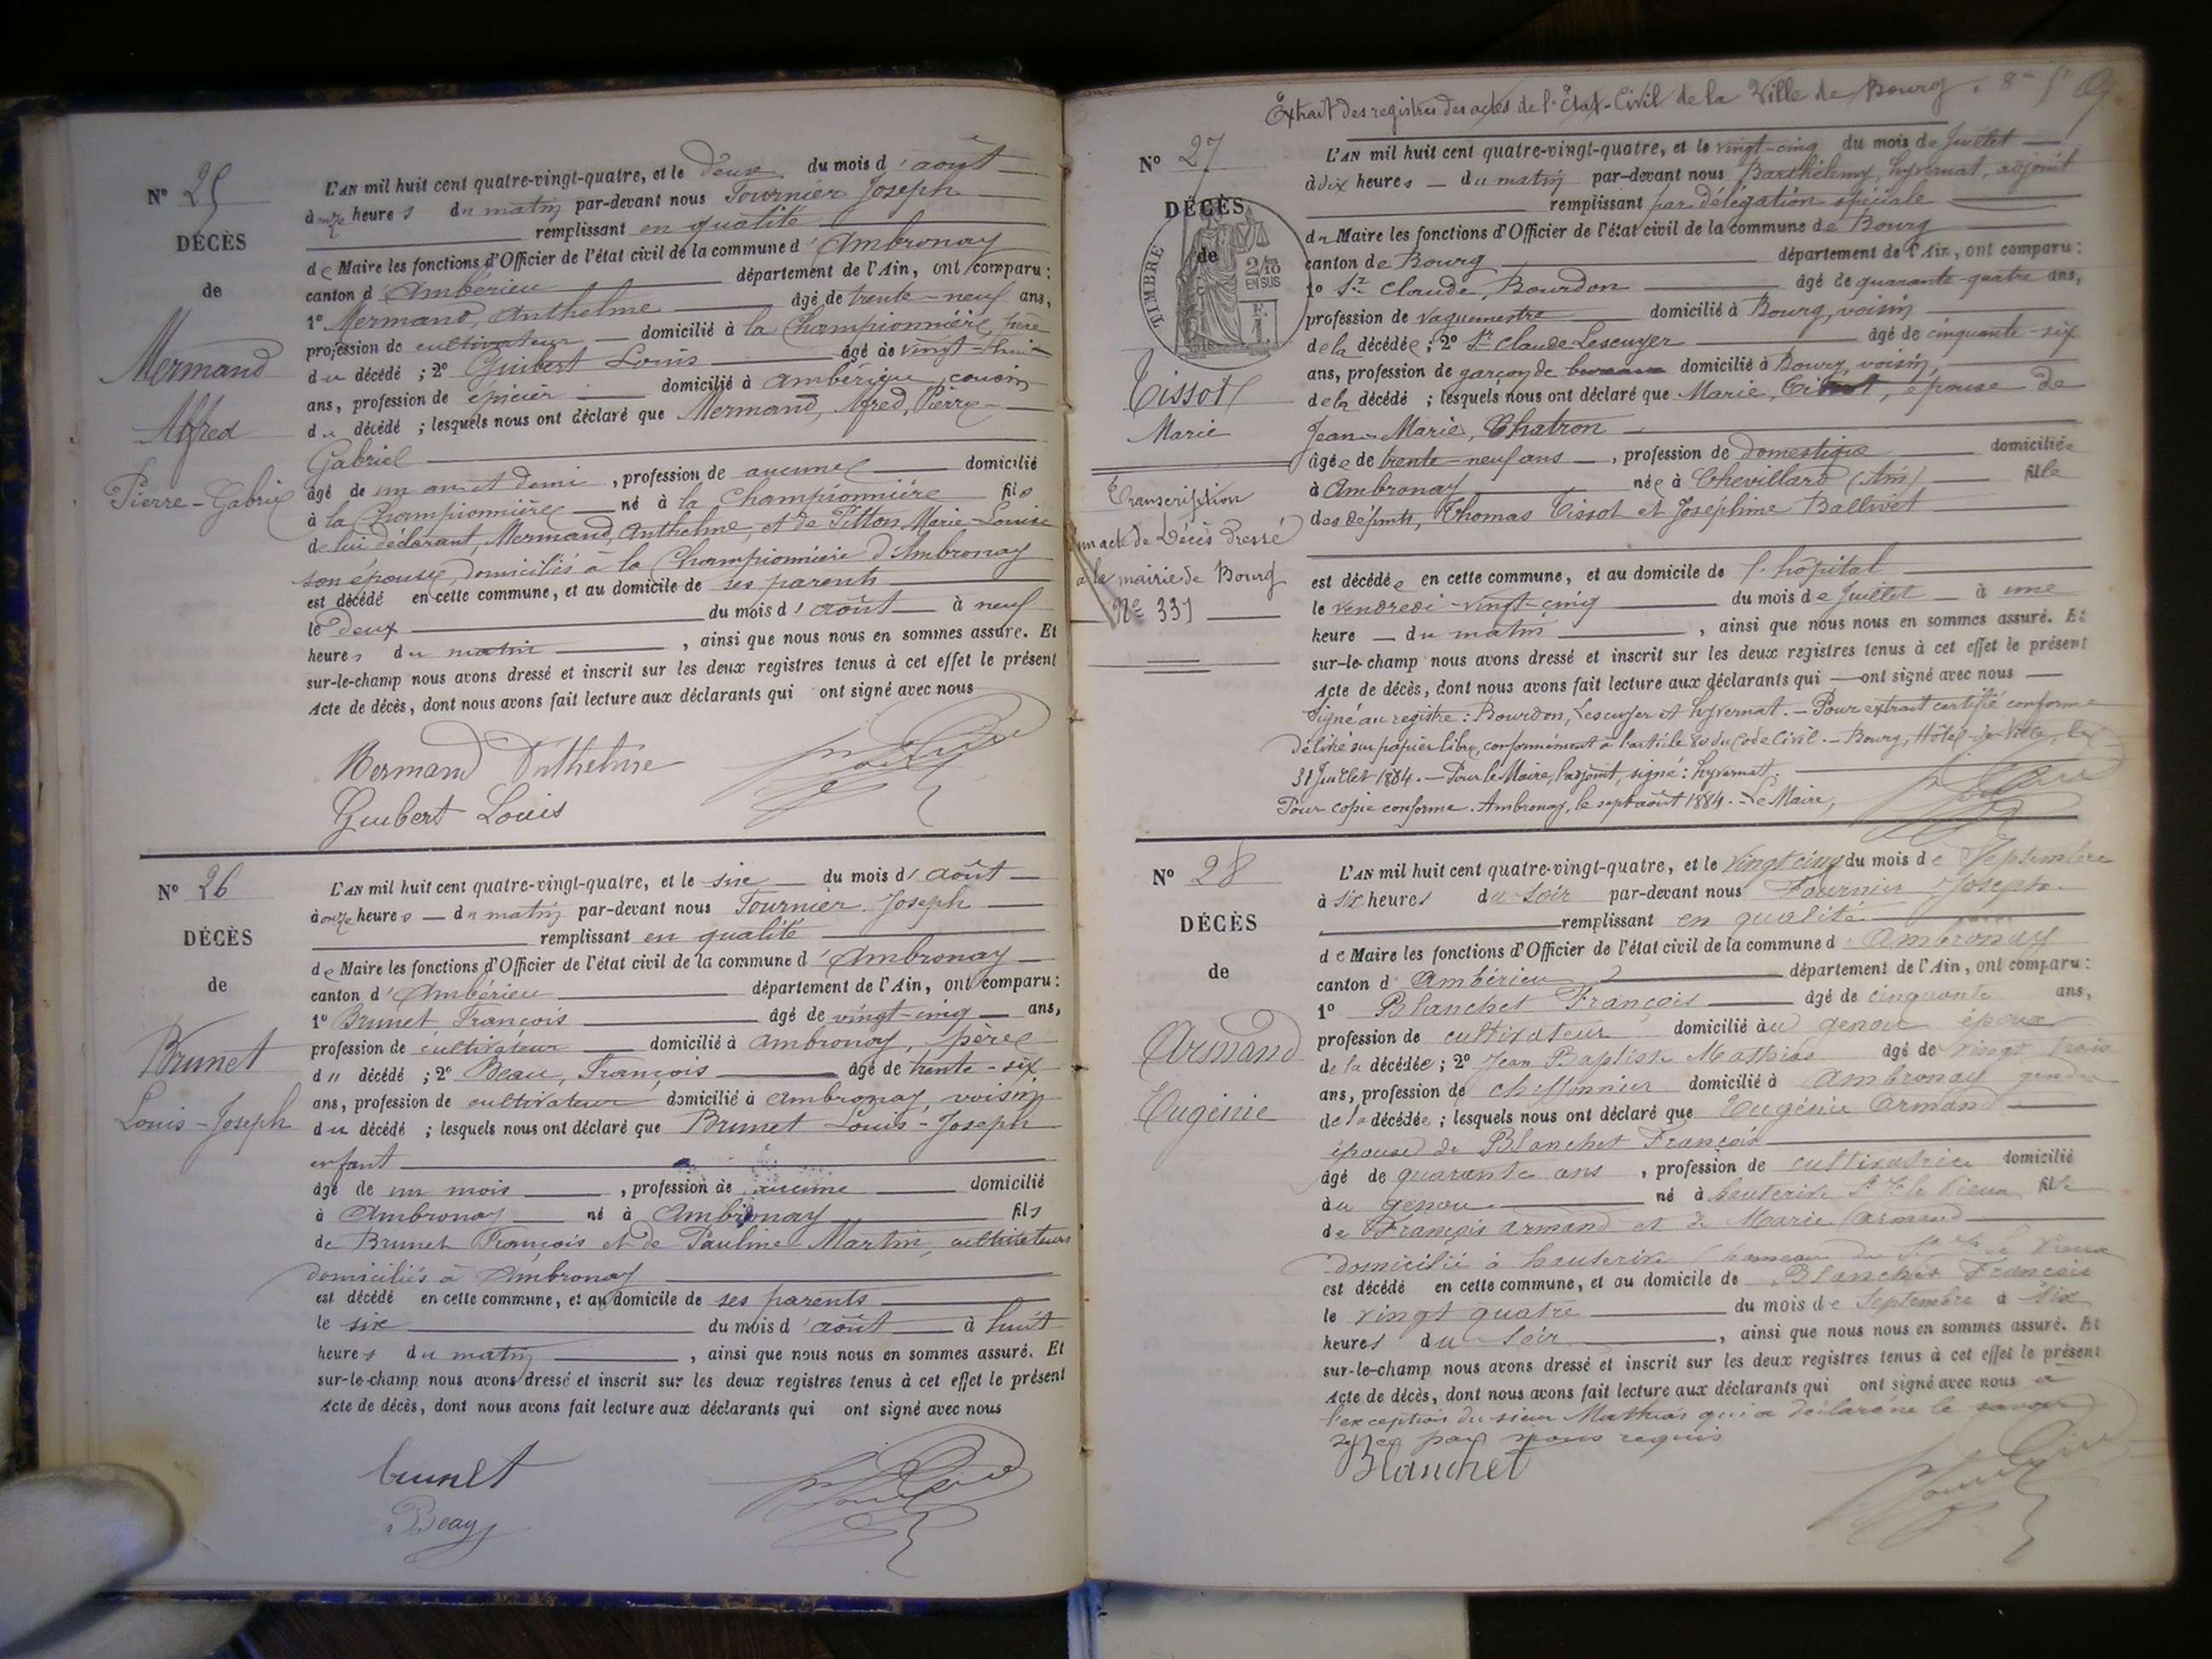 N° 25
DÉCÈS
de
Mermand
Alfred
Pierre-Gabriel
L'AN mil huit cent quatre-vingt-quatre, et le deux du mois d'août
à onze heures du matin par-devant nous Tournier Joseph
remplissant en qualité
de Maire les fonctions d'Officier de l'état civil de la commune d'Ambronay
canton d'Ambérieu département de l'Ain, ont comparu :
1° Mermand, Anthelme âgé de trente-neuf ans,
profession de cultivateur domicilié à la Championnière, père
du décédé ; 2° Guibert Louis âgé de vingt-huit
ans, profession de épicier domicilié à Ambérieu, cousin
du décédé ; lesquels nous ont déclaré que Mermand, Alfred, Pierre
Gabriel
âgé de un an et demi, profession de aucune domicilié
à la Championnière né à la Championnière fils
de lui déclarant, Mermand, Anthelme, et de Pitton, Marie-Louise
son épouse, domiciliés à la Championnière d'Ambronay
est décédé en cette commune, et au domicile de ses parents
le deux du mois d'août à neuf
heures du matin, ainsi que nous nous en sommes assuré. Et
sur-le-champ nous avons dressé et inscrit sur les deux registres tenus à cet effet le présent
Acte de décès, dont nous avons fait lecture aux déclarants qui ont signé avec nous
Mermand Anthelme
Guibert Louis
N° 26
DÉCÈS
de
Brunet
Louis-Joseph
L'AN mil huit cent quatre-vingt-quatre, et le six du mois d'août
à onze heures du matin par-devant nous Tournier Joseph
remplissant en qualité
de Maire les fonctions d'Officier de l'état civil de la commune d'Ambronay
canton d'Ambérieu département de l'Ain, ont comparu :
1° Brunet François âgé de vingt-cinq ans,
profession de cultivateur domicilié à Ambronay, père
du décédé ; 2° Beau, François âgé de trente-six
ans, profession de cultivateur domicilié à Ambronay, voisin
du décédé ; lesquels nous ont déclaré que Brunet Louis-Joseph
enfant
âgé de un mois, profession de aucune domicilié
à Ambronay né à Ambronay fils
de Brunet François et de Pauline Martin, cultivateurs
domiciliés à Ambronay
est décédé en cette commune, et au domicile de ses parents
le six du mois d'août à huit
heures du matin, ainsi que nous nous en sommes assuré. Et
sur-le-champ nous avons dressé et inscrit sur les deux registres tenus à cet effet le présent
Acte de décès, dont nous avons fait lecture aux déclarants qui ont signé avec nous
brunet
Beau
Extrait des registres des actes de l'Etat-Civil de la Ville de Bourg.
N° 27
DÉCÈS
de
TIMBRE
2/10
EN SUS
Tissot
Marie
Transcription
d'un acte de Décès dressé
à la mairie de Bourg
N° 331
L'AN mil huit cent quatre-vingt-quatre, et le vingt-cinq du mois de Juillet
à dix heures du matin par-devant nous Barthélemy, hyvernat, adjoint
remplissant par délégation spéciale
du Maire les fonctions d'Officier de l'état civil de la commune de Bourg
canton de Bourg département de l'Ain, ont comparu :
1° Sr Claude, Bourdon âgé de quarante-quatre ans,
profession de vaguemestre domicilié à Bourg, voisin
de la décédée ; 2° Sr Claude Lescuyer âgé de cinquante-six
ans, profession de garçon de bureau domicilié à Bourg, voisin,
de la décédé ; lesquels nous ont déclaré que Marie, Tissot, épouse de
Jean-Marie, Chatron
âgée de trente-neuf ans, profession de domestique domiciliée
à Ambronay née à Chevillard (Ain) fille
des défunts, Thomas Tissot et Joséphine Ballivet
est décédée en cette commune, et au domicile de l'hopital
le vendredi-vingt-cinq du mois de Juillet à une
heure du matin, ainsi que nous nous en sommes assuré. Et
sur-le-champ nous avons dressé et inscrit sur les deux registres tenus à cet effet le présent
Acte de décès, dont nous avons fait lecture aux déclarants qui ont signé avec nous
Signé au registre : Bourdon, Lescuyer et hyvernat. - Pour extrait certifié conforme
délivré sur papier libre, conformément à l'article 80 du Code Civil. - Bourg, Hôtel-de-Ville, le
31 Juillet 1884. - Pour le Maire, l'adjoint, signé : hyvernat.
Pour copie conforme. Ambronay, le sept août 1884. - Le Maire,
N° 28
DÉCÈS
de
Armand
Eugénie
L'AN mil huit cent quatre-vingt-quatre, et le vingt cinq du mois de Septembre
à six heures du soir par-devant nous Tournier Joseph
remplissant en qualité
de Maire les fonctions d'Officier de l'état civil de la commune d'Ambronay
canton d'Ambérieu département de l'Ain, ont comparu :
1° Blanchet François âgé de cinquante ans,
profession de cultivateur domicilié au genou époux
de la décédée ; 2° Jean Baptiste Mathias âgé de vingt trois
ans, profession de chiffonnier domicilié à Ambronay gendre
de la décédée ; lesquels nous ont déclaré que Eugénie Armand
épouse de Blanchet François
âgé de quarante ans, profession de cultivatrice domicilié
au genou né à hauterive St Jn le Vieux fille
de François armand et de Marie armand
domicilié à hauterive hameau de St Jn le Vieux
est décédé en cette commune, et au domicile de Blanchet François
le vingt quatre du mois de Septembre à six
heures du soir, ainsi que nous nous en sommes assuré. Et
sur-le-champ nous avons dressé et inscrit sur les deux registres tenus à cet effet le présent
Acte de décès, dont nous avons fait lecture aux déclarants qui ont signé avec nous a
l'exception du sieur Mathias qui a déclaré ne le savoir
de ce par nous requis
Blanchet